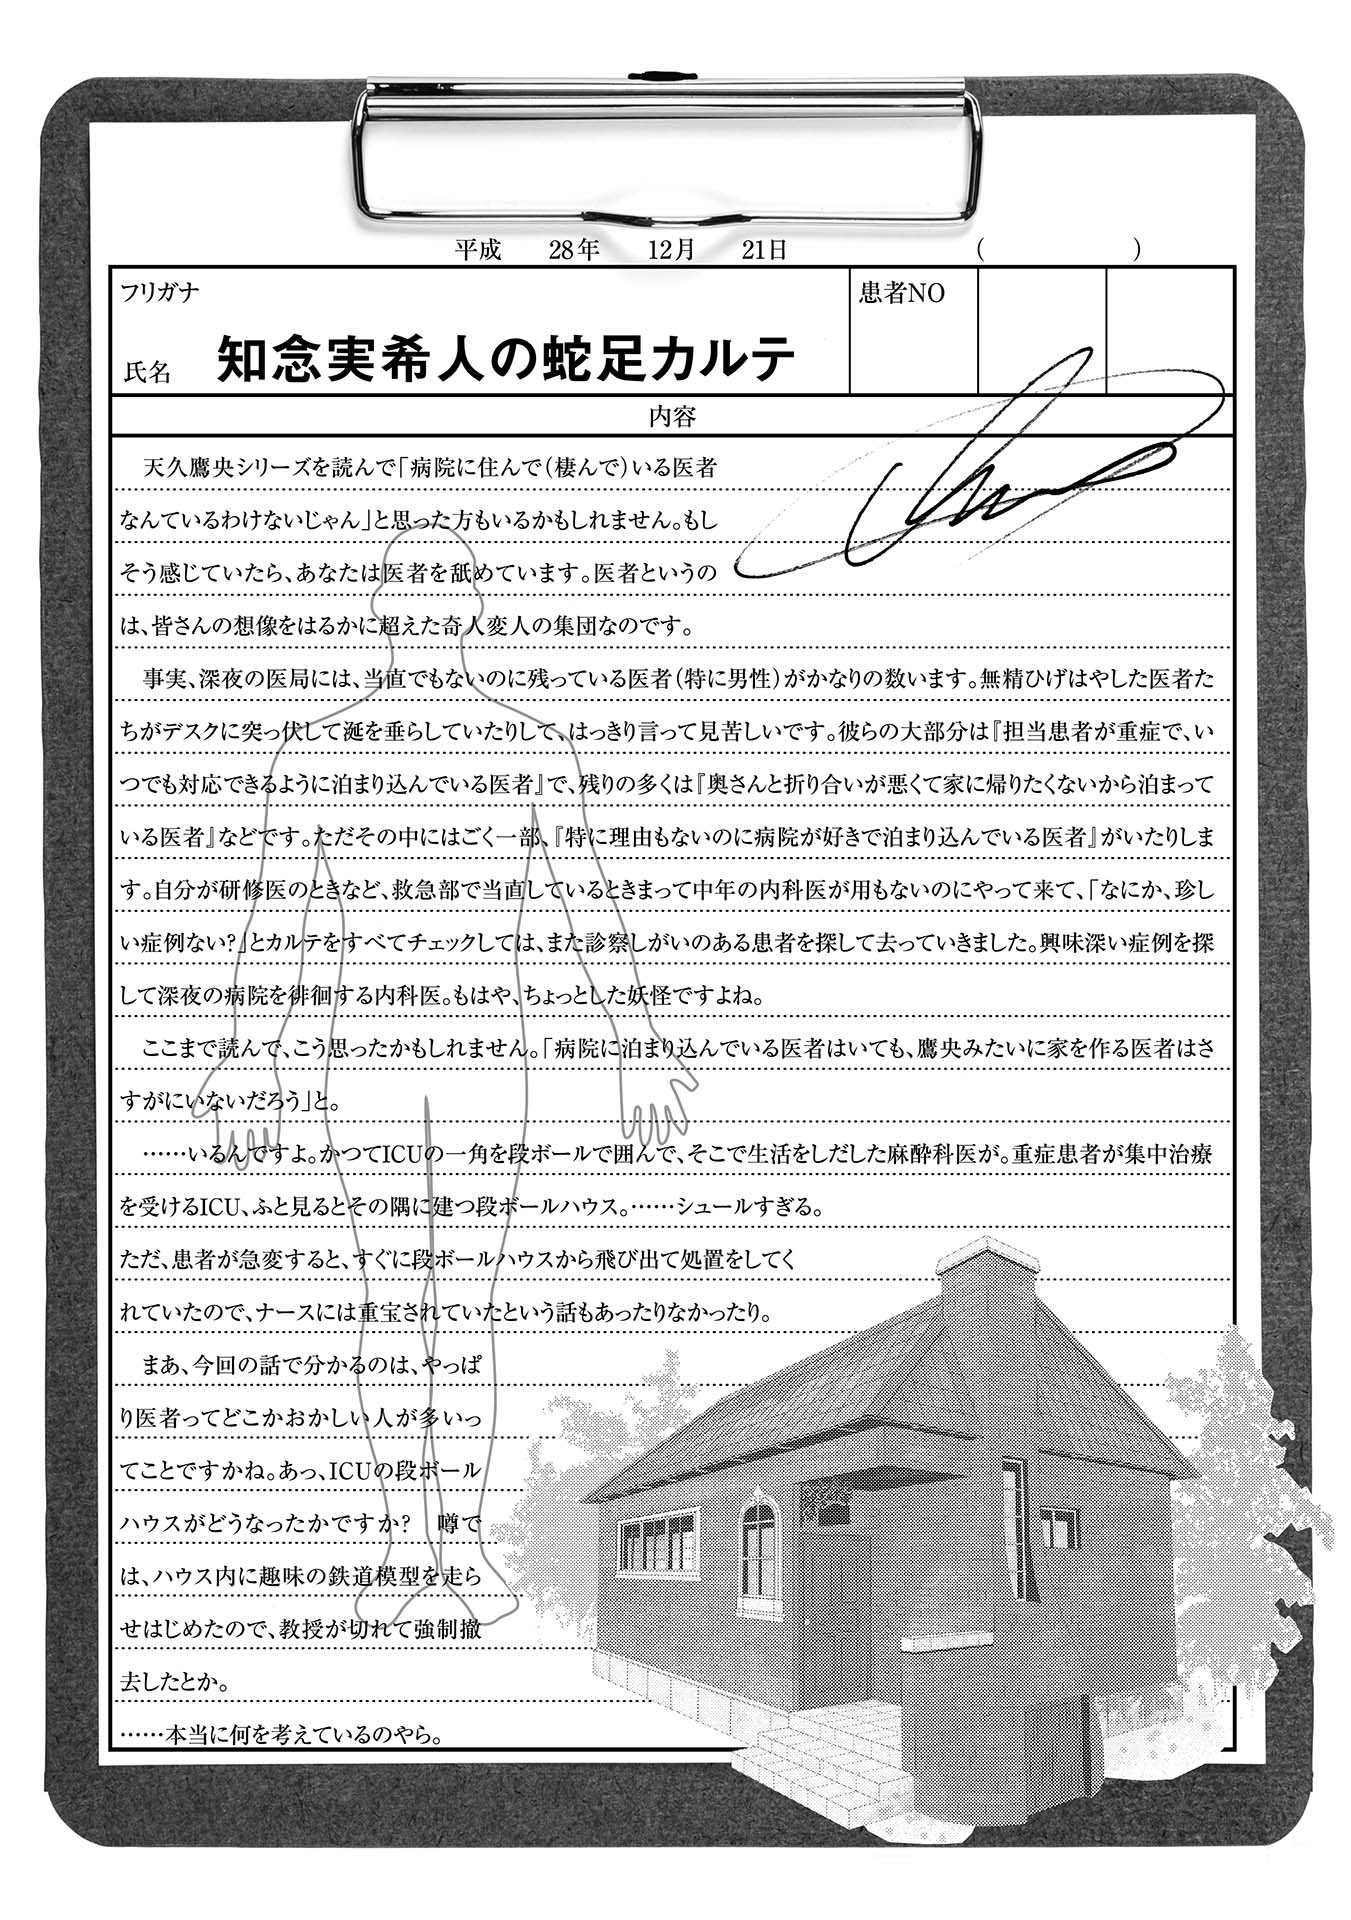 平成　28年　12月　21日　（　　　）
フリガナ
患者NO
氏名　知念実希人の蛇足カルテ
内容
天久鷹央シリーズを読んで「病院に住んで（棲んで）いる医者
なんているわけないじゃん」と思った方もいるかもしれません。もし
そう感じていたら、あなたは医者を舐めています。医者というの
は、皆さんの想像をはるかに超えた奇人変人の集団なのです。
事実、深夜の医局には、当直でもないのに残っている医者（特に男性）がかなりの数います。無精ひげはやした医者た
ちがデスクに突っ伏して涎を垂らしていたりして、はっきり言って見苦しいです。彼らの大部分は『担当患者が重症で、い
つでも対応できるように泊まり込んでいる医者』で、残りの多くは『奥さんと折り合いが悪くて家に帰りたくないから泊まって
いる医者』などです。ただその中にはごく一部、『特に理由もないのに病院が好きで泊まり込んでいる医者』がいたりしま
す。自分が研修医のときなど、救急部で当直しているときまって中年の内科医が用もないのにやって来て、「なにか、珍し
い症例ない？」とカルテをすべてチェックしては、また診察しがいのある患者を探して去っていきました。興味深い症例を探
して深夜の病院を徘徊する内科医。もはや、ちょっとした妖怪ですよね。
ここまで読んで、こう思ったかもしれません。「病院に泊まり込んでいる医者はいても、鷹央みたいに家を作る医者はさ
すがにいないだろう」と。
……いるんですよ。かつてICUの一角を段ボールで囲んで、そこで生活をしだした麻酔科医が。重症患者が集中治療
を受けるICU、ふと見るとその隅に建つ段ボールハウス。……シュールすぎる。
ただ、患者が急変すると、すぐに段ボールハウスから飛び出て処置をしてく
れていたので、ナースには重宝されていたという話もあったりなかったり。
まあ、今回の話で分かるのは、やっぱ
り医者ってどこかおかしい人が多いっ
てことですかね。あっ、ICUの段ボール
ハウスがどうなったかですか？　噂で
は、ハウス内に趣味の鉄道模型を走ら
せはじめたので、教授が切れて強制撤
去したとか。
……本当に何を考えているのやら。